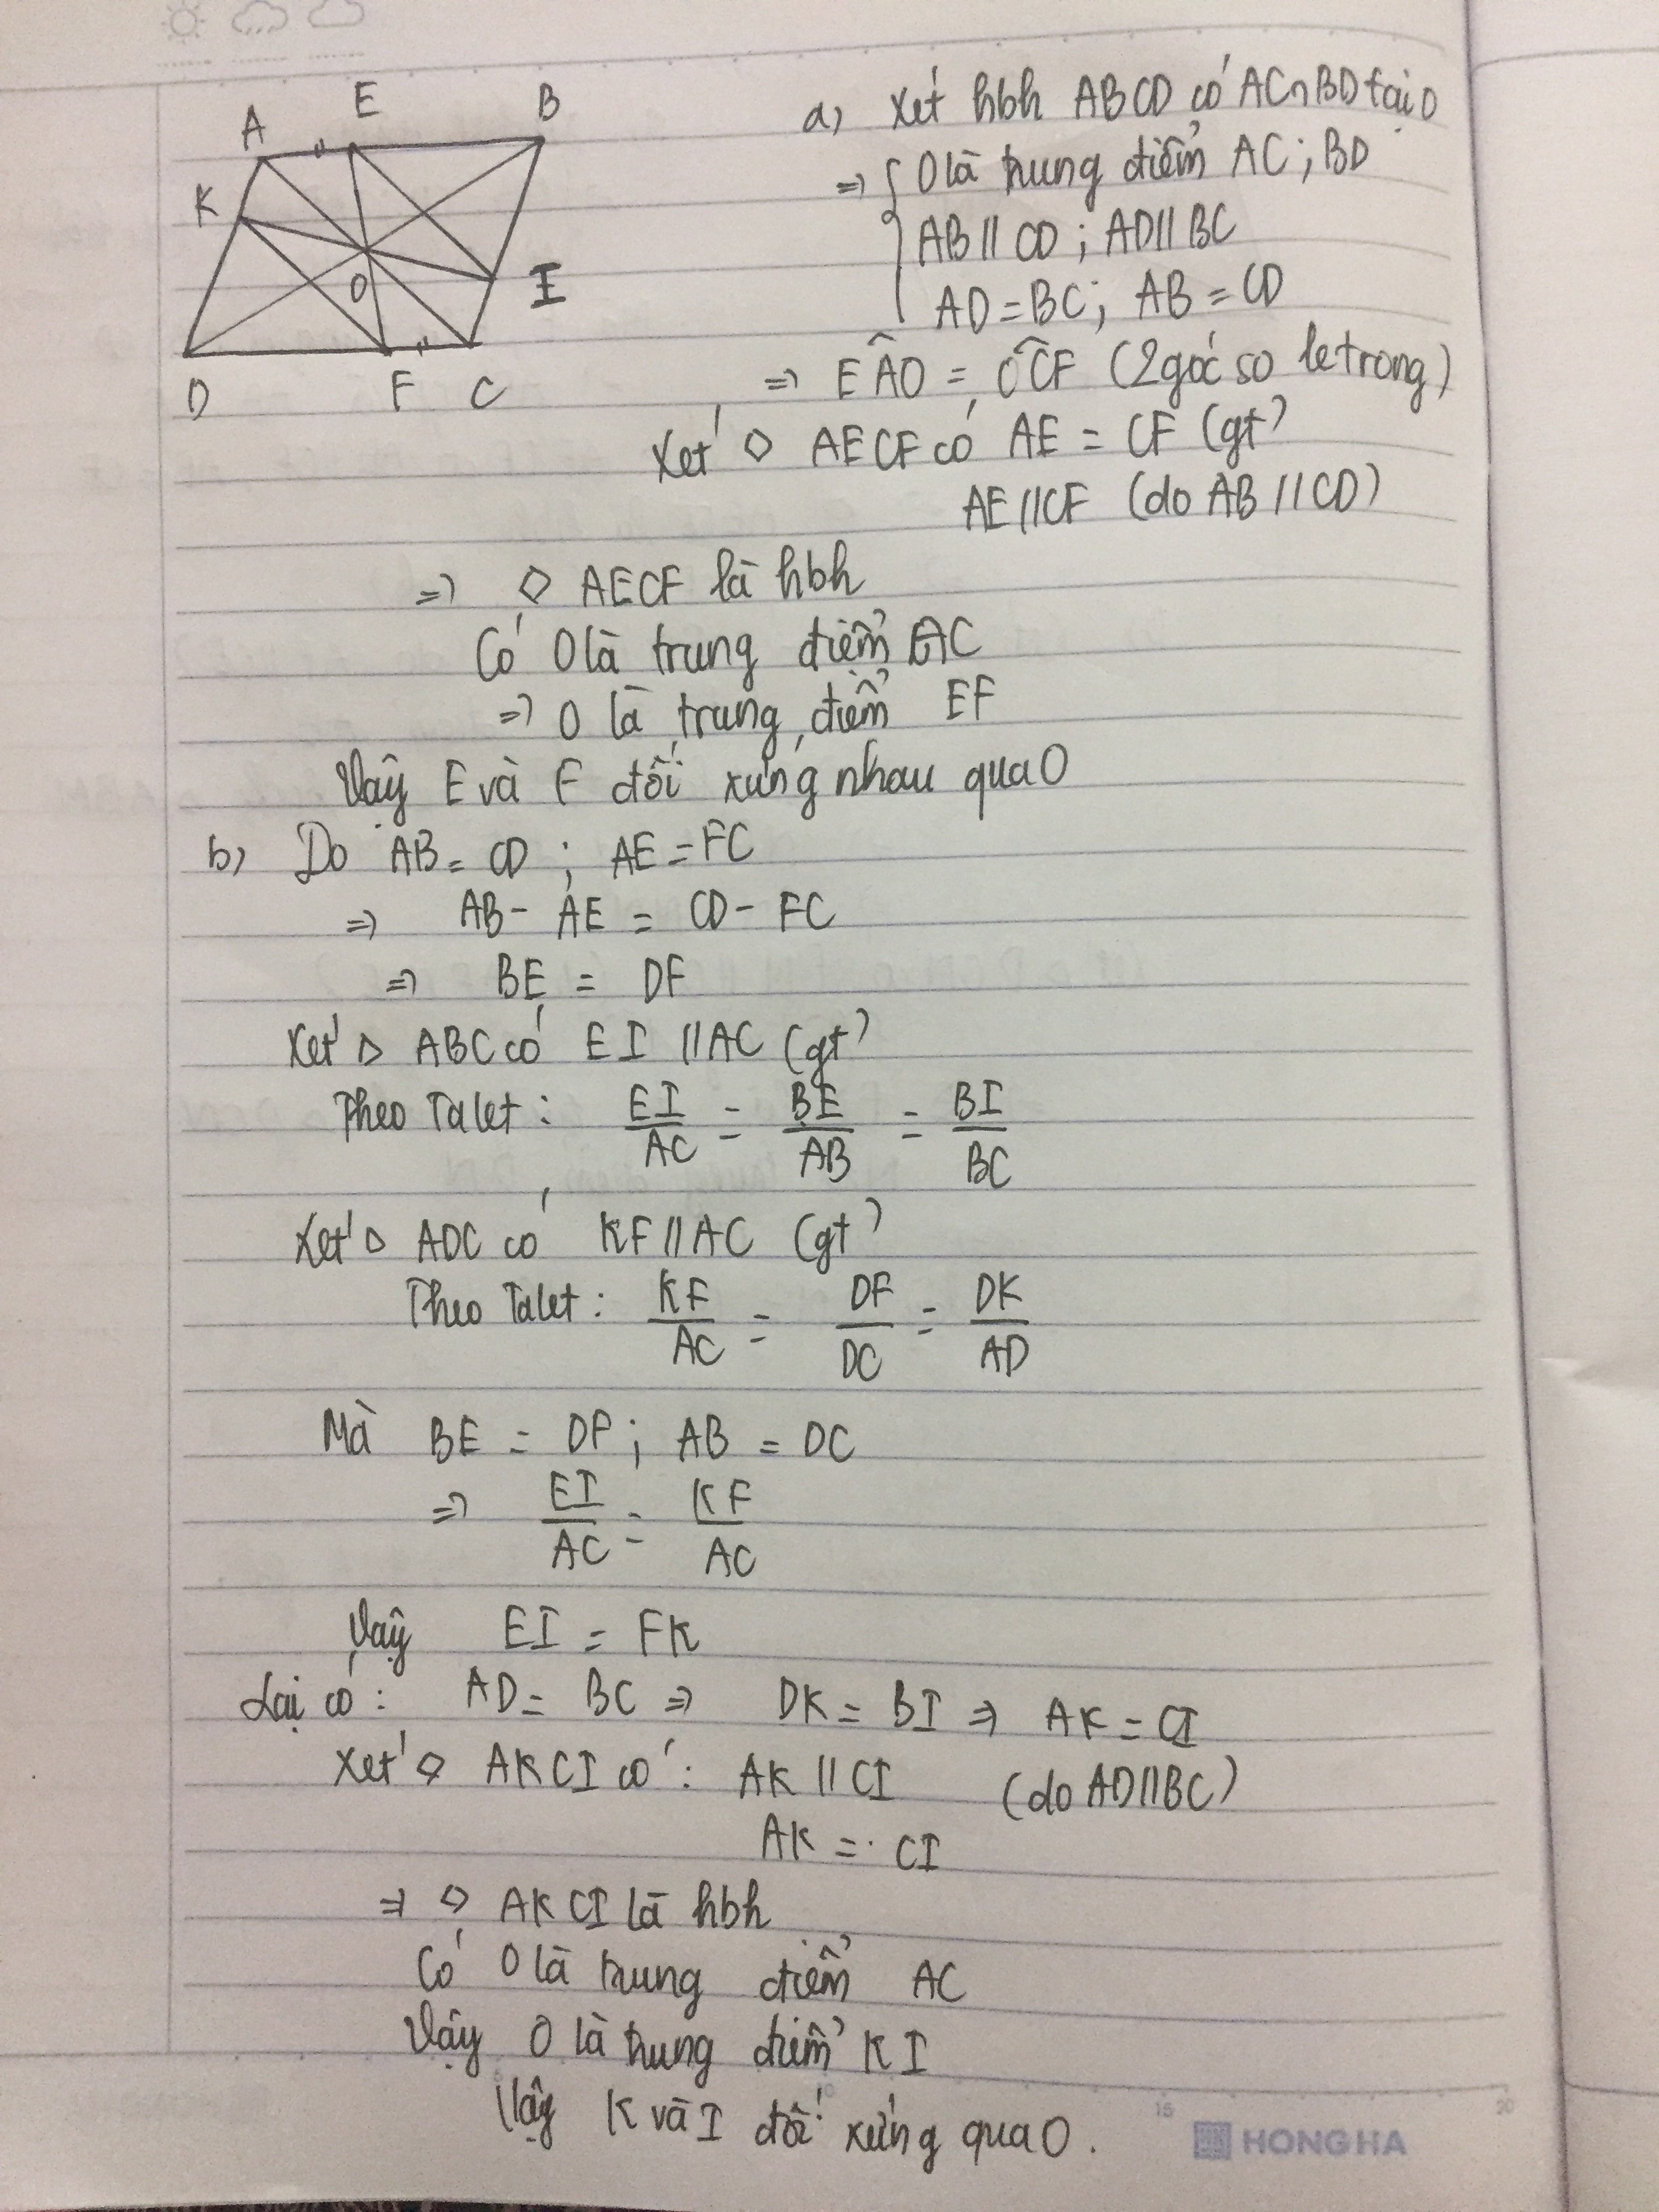 A E B
K
O I
D F C
a) Xét hbh ABCD có AC∩BD tại O
=> { O là trung điểm AC ; BD
AB // CD ; AD // BC
AD = BC ; AB = CD
=> EÂO = OĈF (2 góc so le trong)
Xét ◇ AECF có AE = CF (gt)
AE // CF (do AB // CD)
=> ◇ AECF là hbh
Có O là trung điểm AC
=> O là trung điểm EF
Vậy E và F đối xứng nhau qua O
b) Do AB = CD ; AE = FC
=> AB - AE = CD - FC
=> BE = DF
Xét △ ABC có EI // AC (gt)
Theo Talet : EI/AC = BE/AB = BI/BC
Xét △ ADC có KF // AC (gt)
Theo Talet : KF/AC = DF/DC = DK/AD
Mà BE = DF ; AB = DC
=> EI/AC = KF/AC
Vậy EI = FK
Lại có : AD = BC => DK = BI => AK = CI
Xét ◇ AKCI có : AK // CI (do AD // BC)
AK = CI
=> ◇ AKCI là hbh
Có O là trung điểm AC
Vậy O là trung điểm KI
Vậy K và I đối xứng qua O.
15 20
HONG HA